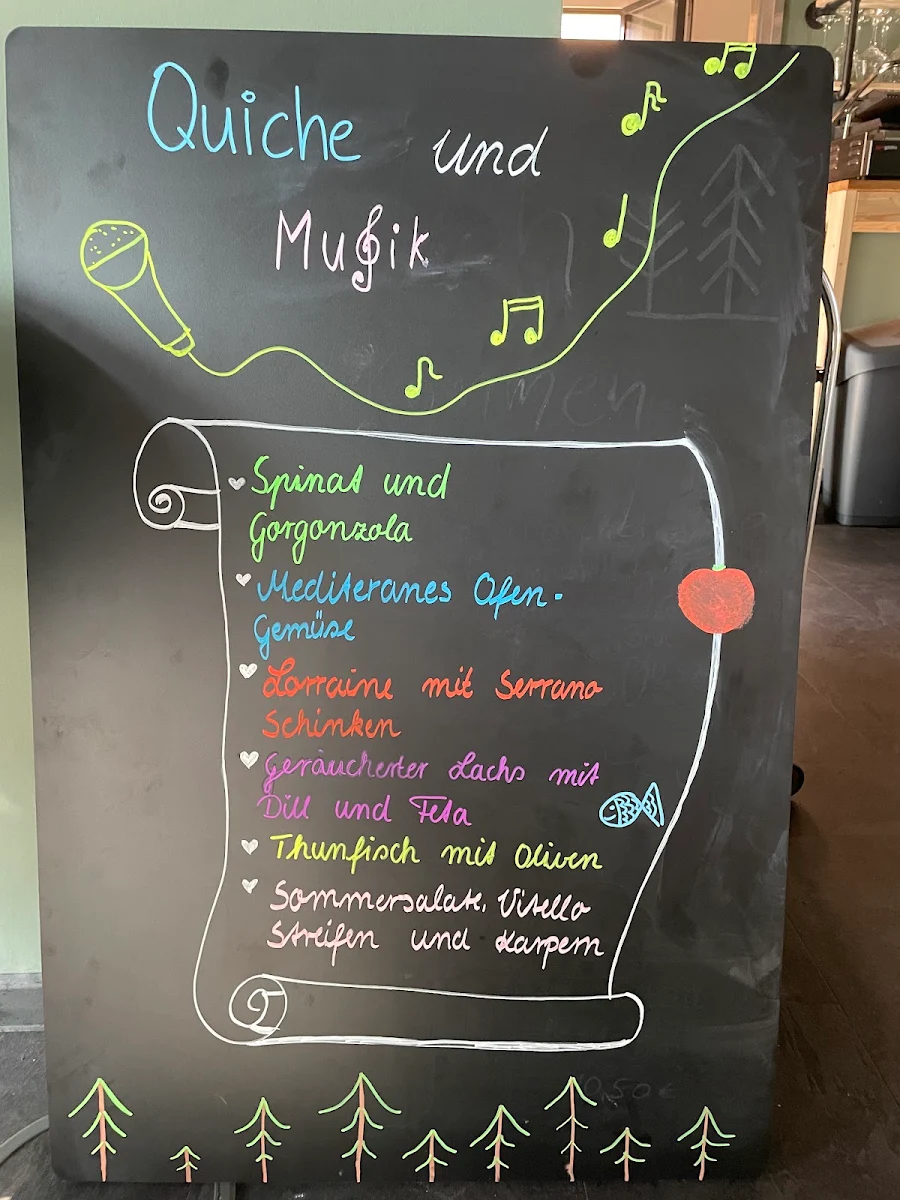 Quiche und
Musik
Spinat und
Gorgonzola
Mediteranes Ofen-
Gemüse
Lorraine mit Serrano
Schinken
Geräucherter Lachs mit
Dill und Feta
Thunfisch mit Oliven
Sommersalate, Vitello
Streifen und Karpern
0,50€